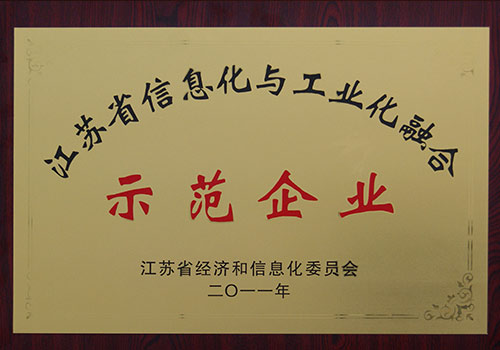 江苏省信息化与工业化融合
示范企业
江苏省经济和信息化委员会
二〇一一年